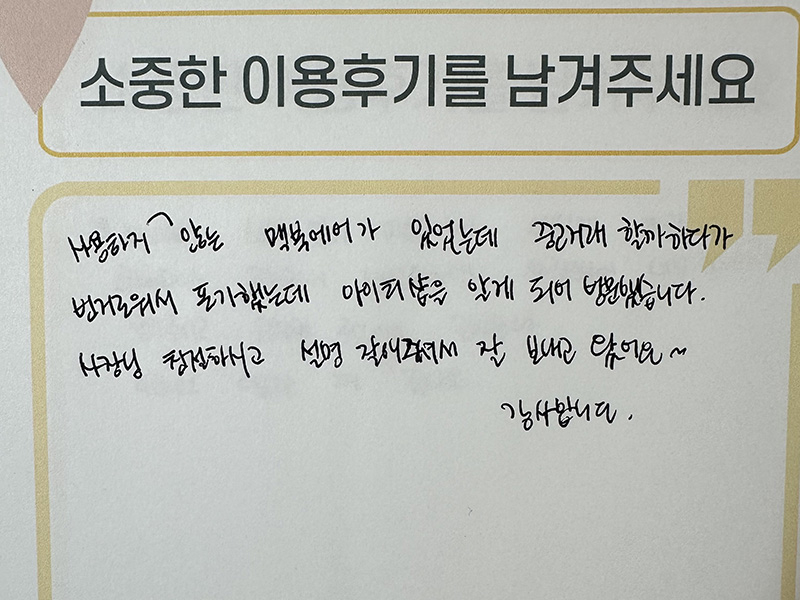 소중한 이용후기를 남겨주세요
사용하지 않는 맥북에어가 있었는데 중고거래 할까하다가
번거로워서 포기했는데 아이티샵을 알게 되어 방문했습니다.
사장님 친절하시고 설명 잘해주셔서 잘 보내고 왔어요~
감사합니다.